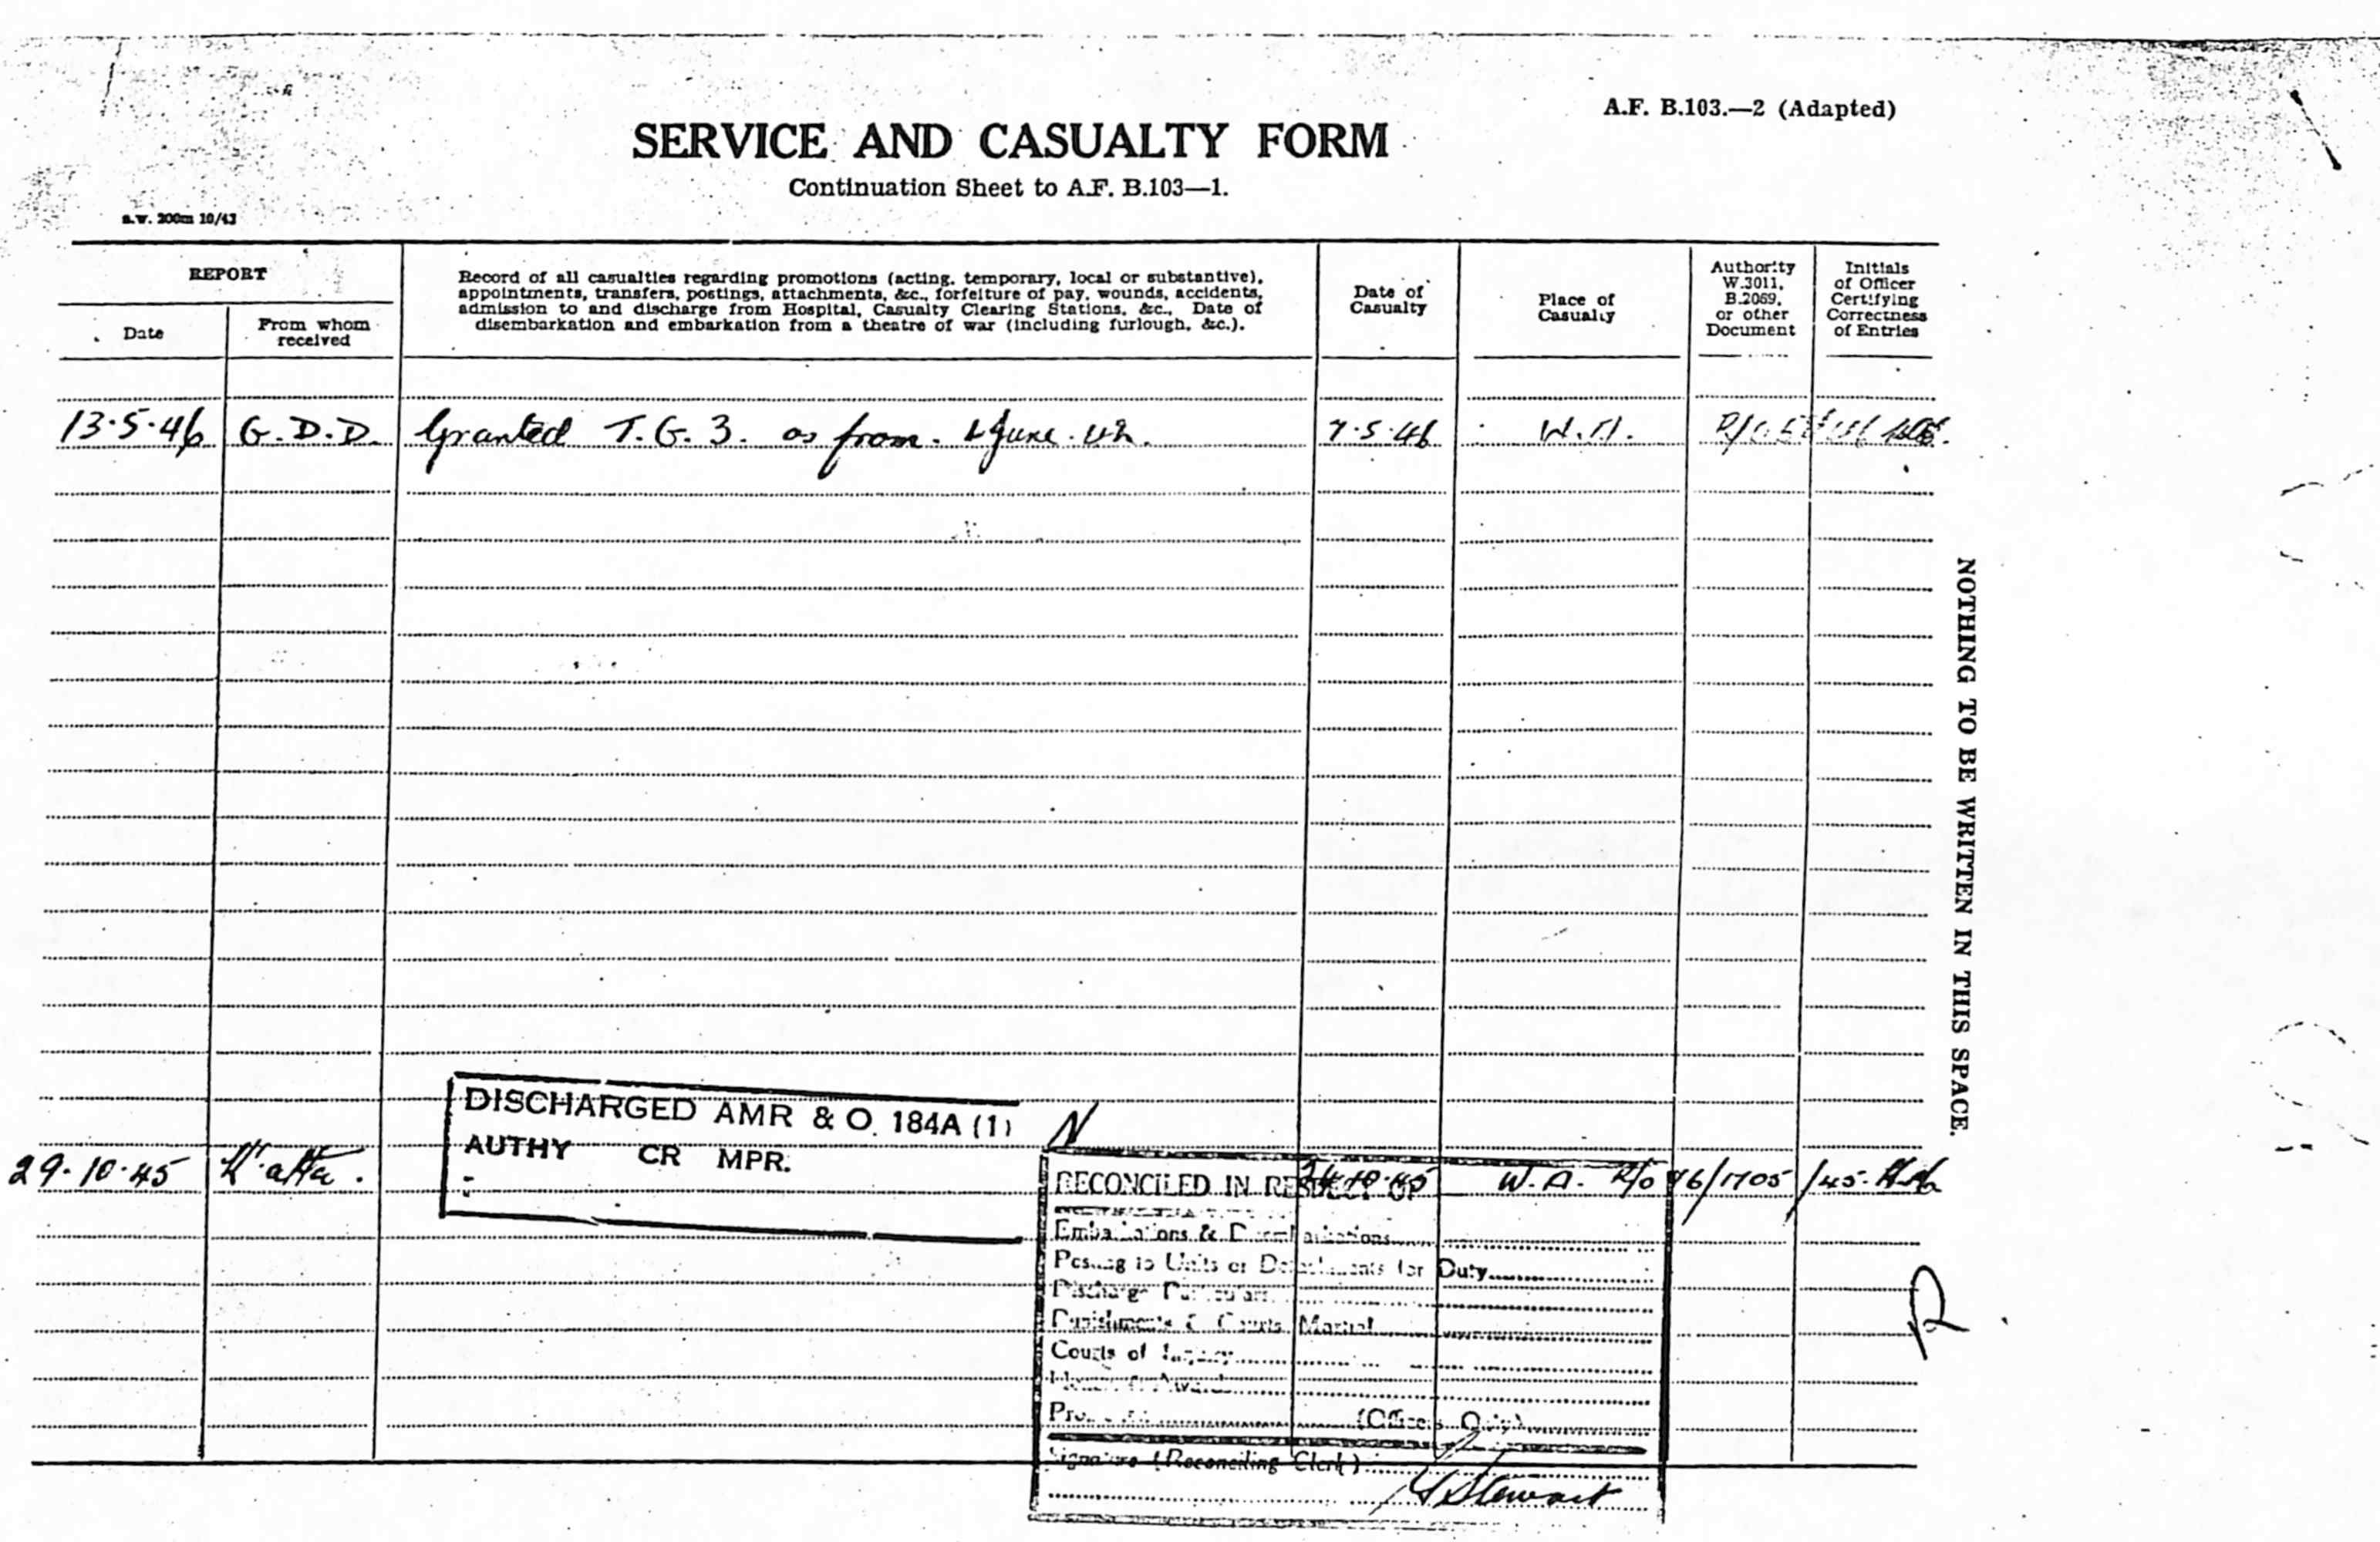 A.F. B.103.—2 (Adapted)
SERVICE AND CASUALTY FORM
Continuation Sheet to A.F. B.103—1.
s.w. 200m 10/43
REPORT
Date
From whom
received
Record of all casualties regarding promotions (acting, temporary, local or substantive),
appointments, transfers, postings, attachments, &c., forfeiture of pay, wounds, accidents,
admission to and discharge from Hospital, Casualty Clearing Stations, &c., Date of
disembarkation and embarkation from a theatre of war (including furlough, &c.).
Date of
Casualty
Place of
Casualty
Authority
W.3011,
B.2069,
or other
Document
Initials
of Officer
Certifying
Correctness
of Entries
13.5.46 G.D.D. Granted T.G.3. as from June 7.5.46 W.A.
NOTHING TO BE WRITTEN IN THIS SPACE.
DISCHARGED AMR & O. 184A (1)
AUTHY CR MPR.
N
29.10.45 W.A. R/O 76/1705/45
RECONCILED IN RESPECT OF
Embarkations & Disembarkations
Posting to Units or Detachments for Duty
Discharge Particulars
Punishments & Courts Martial
Courts of Inquiry
(Officers Only)
Signature (Reconciling Clerk)
Stewart
R